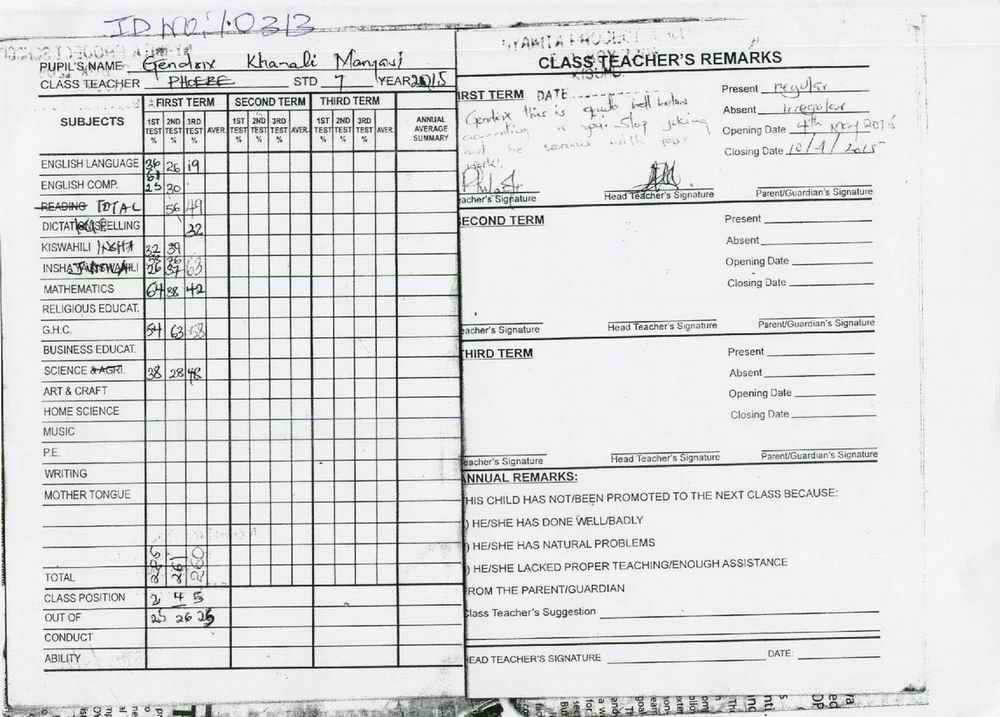 ID NO: 1.0313
PUPIL'S NAME Gendrix Khanali Manyasi
CLASS TEACHER PHOEBE STD 7 YEAR 2015
SUBJECTS
FIRST TERM SECOND TERM THIRD TERM
1ST TEST % 2ND TEST % 3RD TEST % AVER. 1ST TEST % 2ND TEST % 3RD TEST % AVER. 1ST TEST % 2ND TEST % 3RD TEST % AVER. ANNUAL AVERAGE SUMMARY
ENGLISH LANGUAGE 36 26 19
ENGLISH COMP. 25 30
READING TOTAL 61 56 49
DICTAT SPELLING 22
KISWAHILI INSHA 32 39
INSHA 26 37
MATHEMATICS 64 38 42
RELIGIOUS EDUCAT.
G.H.C. 54 63
BUSINESS EDUCAT.
SCIENCE & AGRI. 38 28 48
ART & CRAFT
HOME SCIENCE
MUSIC
P.E.
WRITING
MOTHER TONGUE
TOTAL 261 260
CLASS POSITION 2 4 5
OUT OF 25 26 25
CONDUCT
ABILITY
CLASS TEACHER'S REMARKS
IRST TERM DATE
Present regular
Absent irregular
Opening Date 4th May 2015
Closing Date 10/4/2015
Gendrix this is quite below
according to your stop joking
and be serious with your
work!
acher's Signature Head Teacher's Signature Parent/Guardian's Signature
ECOND TERM
Present
Absent
Opening Date
Closing Date
acher's Signature Head Teacher's Signature Parent/Guardian's Signature
HIRD TERM
Present
Absent
Opening Date
Closing Date
eacher's Signature Head Teacher's Signature Parent/Guardian's Signature
ANNUAL REMARKS:
HIS CHILD HAS NOT/BEEN PROMOTED TO THE NEXT CLASS BECAUSE:
) HE/SHE HAS DONE WELL/BADLY
) HE/SHE HAS NATURAL PROBLEMS
) HE/SHE LACKED PROPER TEACHING/ENOUGH ASSISTANCE
ROM THE PARENT/GUARDIAN
Class Teacher's Suggestion
EAD TEACHER'S SIGNATURE DATE: